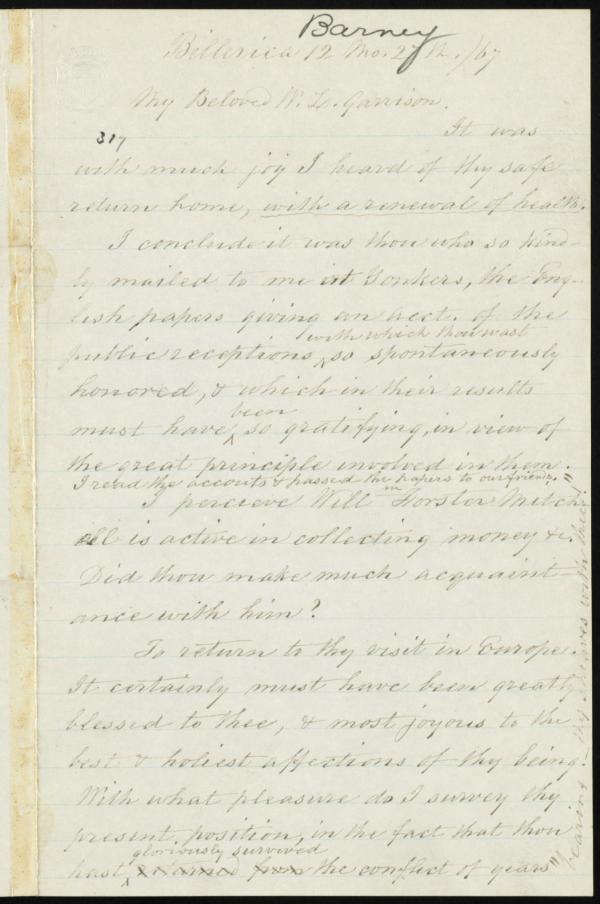 Barney
Billerica 12 Mo. 27th. /67
My Beloved W. L. Garrison.
317
It was
with much joy I heard of thy safe
return home, with a renewal of health.
I conclude it was thou who so kind-
ly mailed to me at Yonkers, the Eng-
lish papers giving an acct. of the
with which thou wast
public receptions, so spontaneously
honored, & which in their results
been
must have, so gratifying, in view of
the great principle involved in them.
I read the accounts & passed the papers to our friends.
I percieve Will m Forster Mitch-
ell is active in collecting money &c.
Did thou make much acquaint-
ance with him?
To return to thy visit in Europe.
It certainly must have been greatly
blessed to thee, & most joyous to the
best & holiest affections of thy being!
With what pleasure do I survey thy
present, position, in the fact that thou
gloriously survived
hast, returned from the conflict of years"
"bearing thy sheaves with thee!"